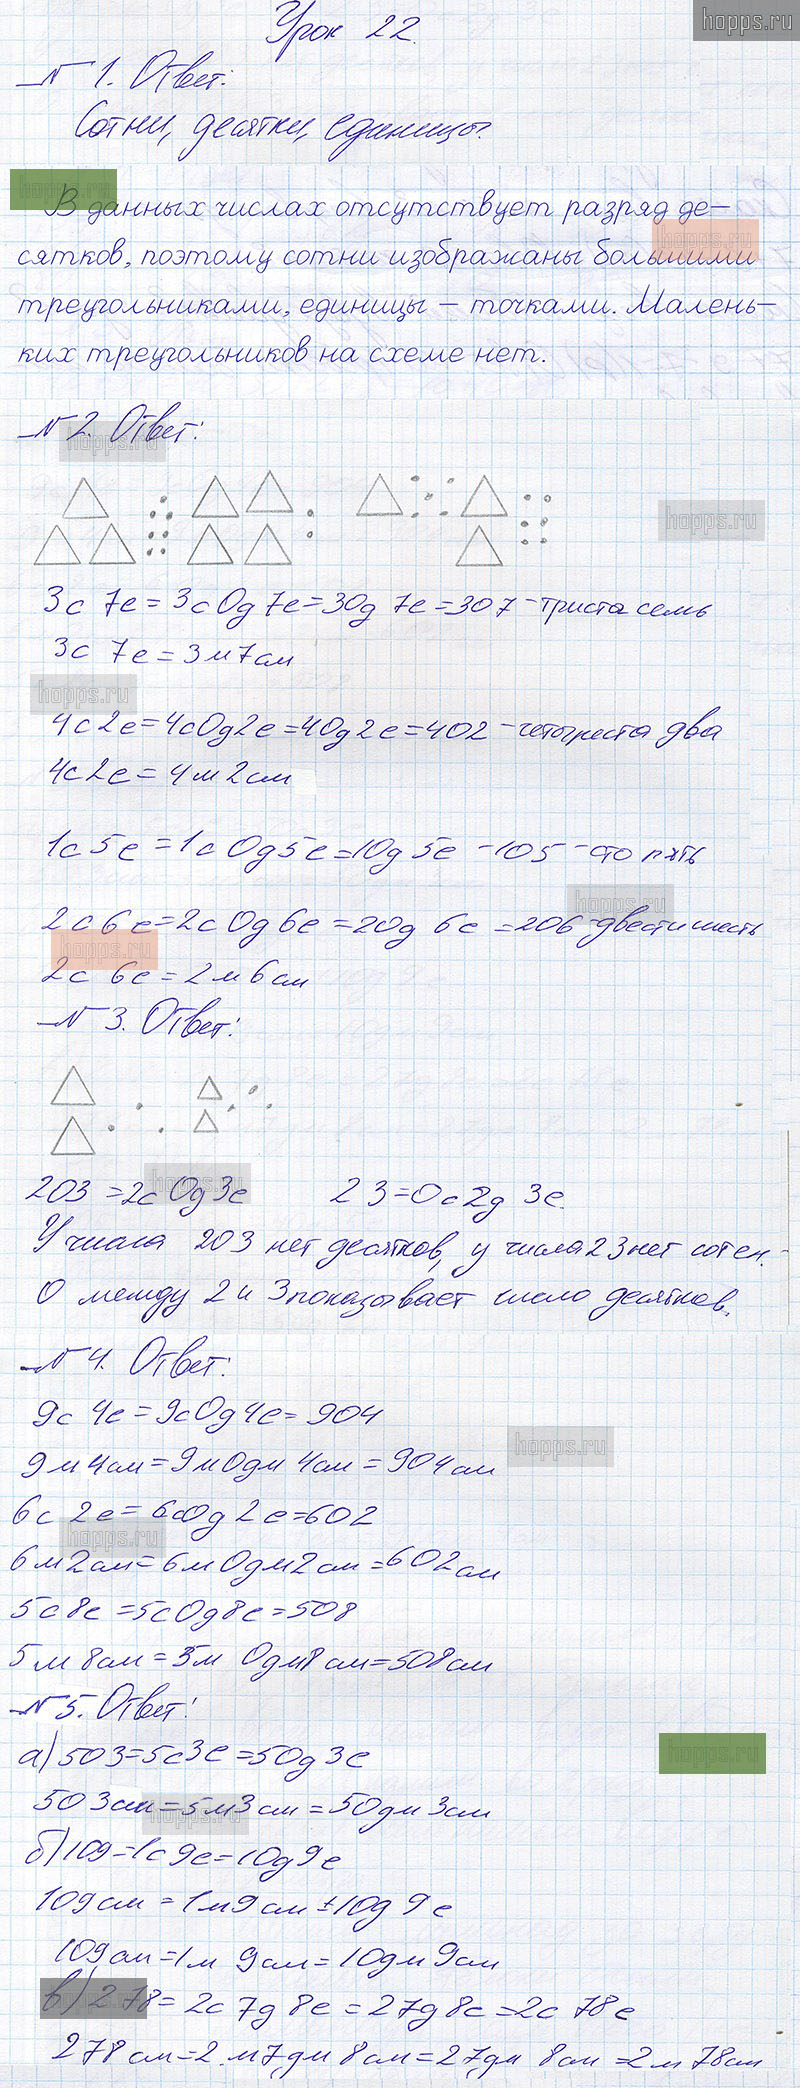 hopps.ru
Урок 22.
№ 1. Ответ:
Сотни, десятки, единицы.
hopps.ru
В данных числах отсутствует разряд де-
hopps.ru
сятков, поэтому сотни изображаны большими
треугольниками, единицы – точками. Малень-
ких треугольников на схеме нет.
№ 2. Ответ:
hopps.ru
hopps.ru
3с 7е = 3с 0д 7е = 30д 7е = 307 – триста семь
3с 7е = 3м 7см
hopps.ru
4с 2е = 4с 0д 2е = 40д 2е = 402 – четыреста два
4с 2е = 4м 2см
1с 5е = 1с 0д 5е = 10д 5е – 105 – сто пять
hopps.ru
2с 6е = 2с 0д 6е = 20д 6е = 206 – двести шесть
hopps.ru
2с 6е = 2м 6см
№ 3. Ответ:
hopps.ru
203 = 2с 0д 3е 23 = 0с 2д 3е.
У числа 203 нет десятков, у числа 23 нет сотен.
0 между 2 и 3 показывает число десятков.
№ 4. Ответ:
9с 4е = 9с 0д 4е = 904
hopps.ru
9м 4см = 9м 0дм 4см = 904см
6с 2е = 6с 0д 2е = 602
hopps.ru
6м 2см = 6м 0дм 2см = 602см
5с 8е = 5с 0д 8е = 508
5м 8см = 5м 0дм 8см = 508см
№ 5. Ответ:
а) 503 = 5с 3е = 50д 3е
hopps.ru
503см = 5м 3см = 50дм 3см
hopps.ru
б) 109 = 1с 9е = 10д 9е
109см = 1м 9см = 10д 9е
109см = 1м 9см = 10дм 9см
hopps.ru
в) 278 = 2с 7д 8е = 27д 8е = 2с 78е
278см = 2м 7дм 8см = 27дм 8см = 2м 78см